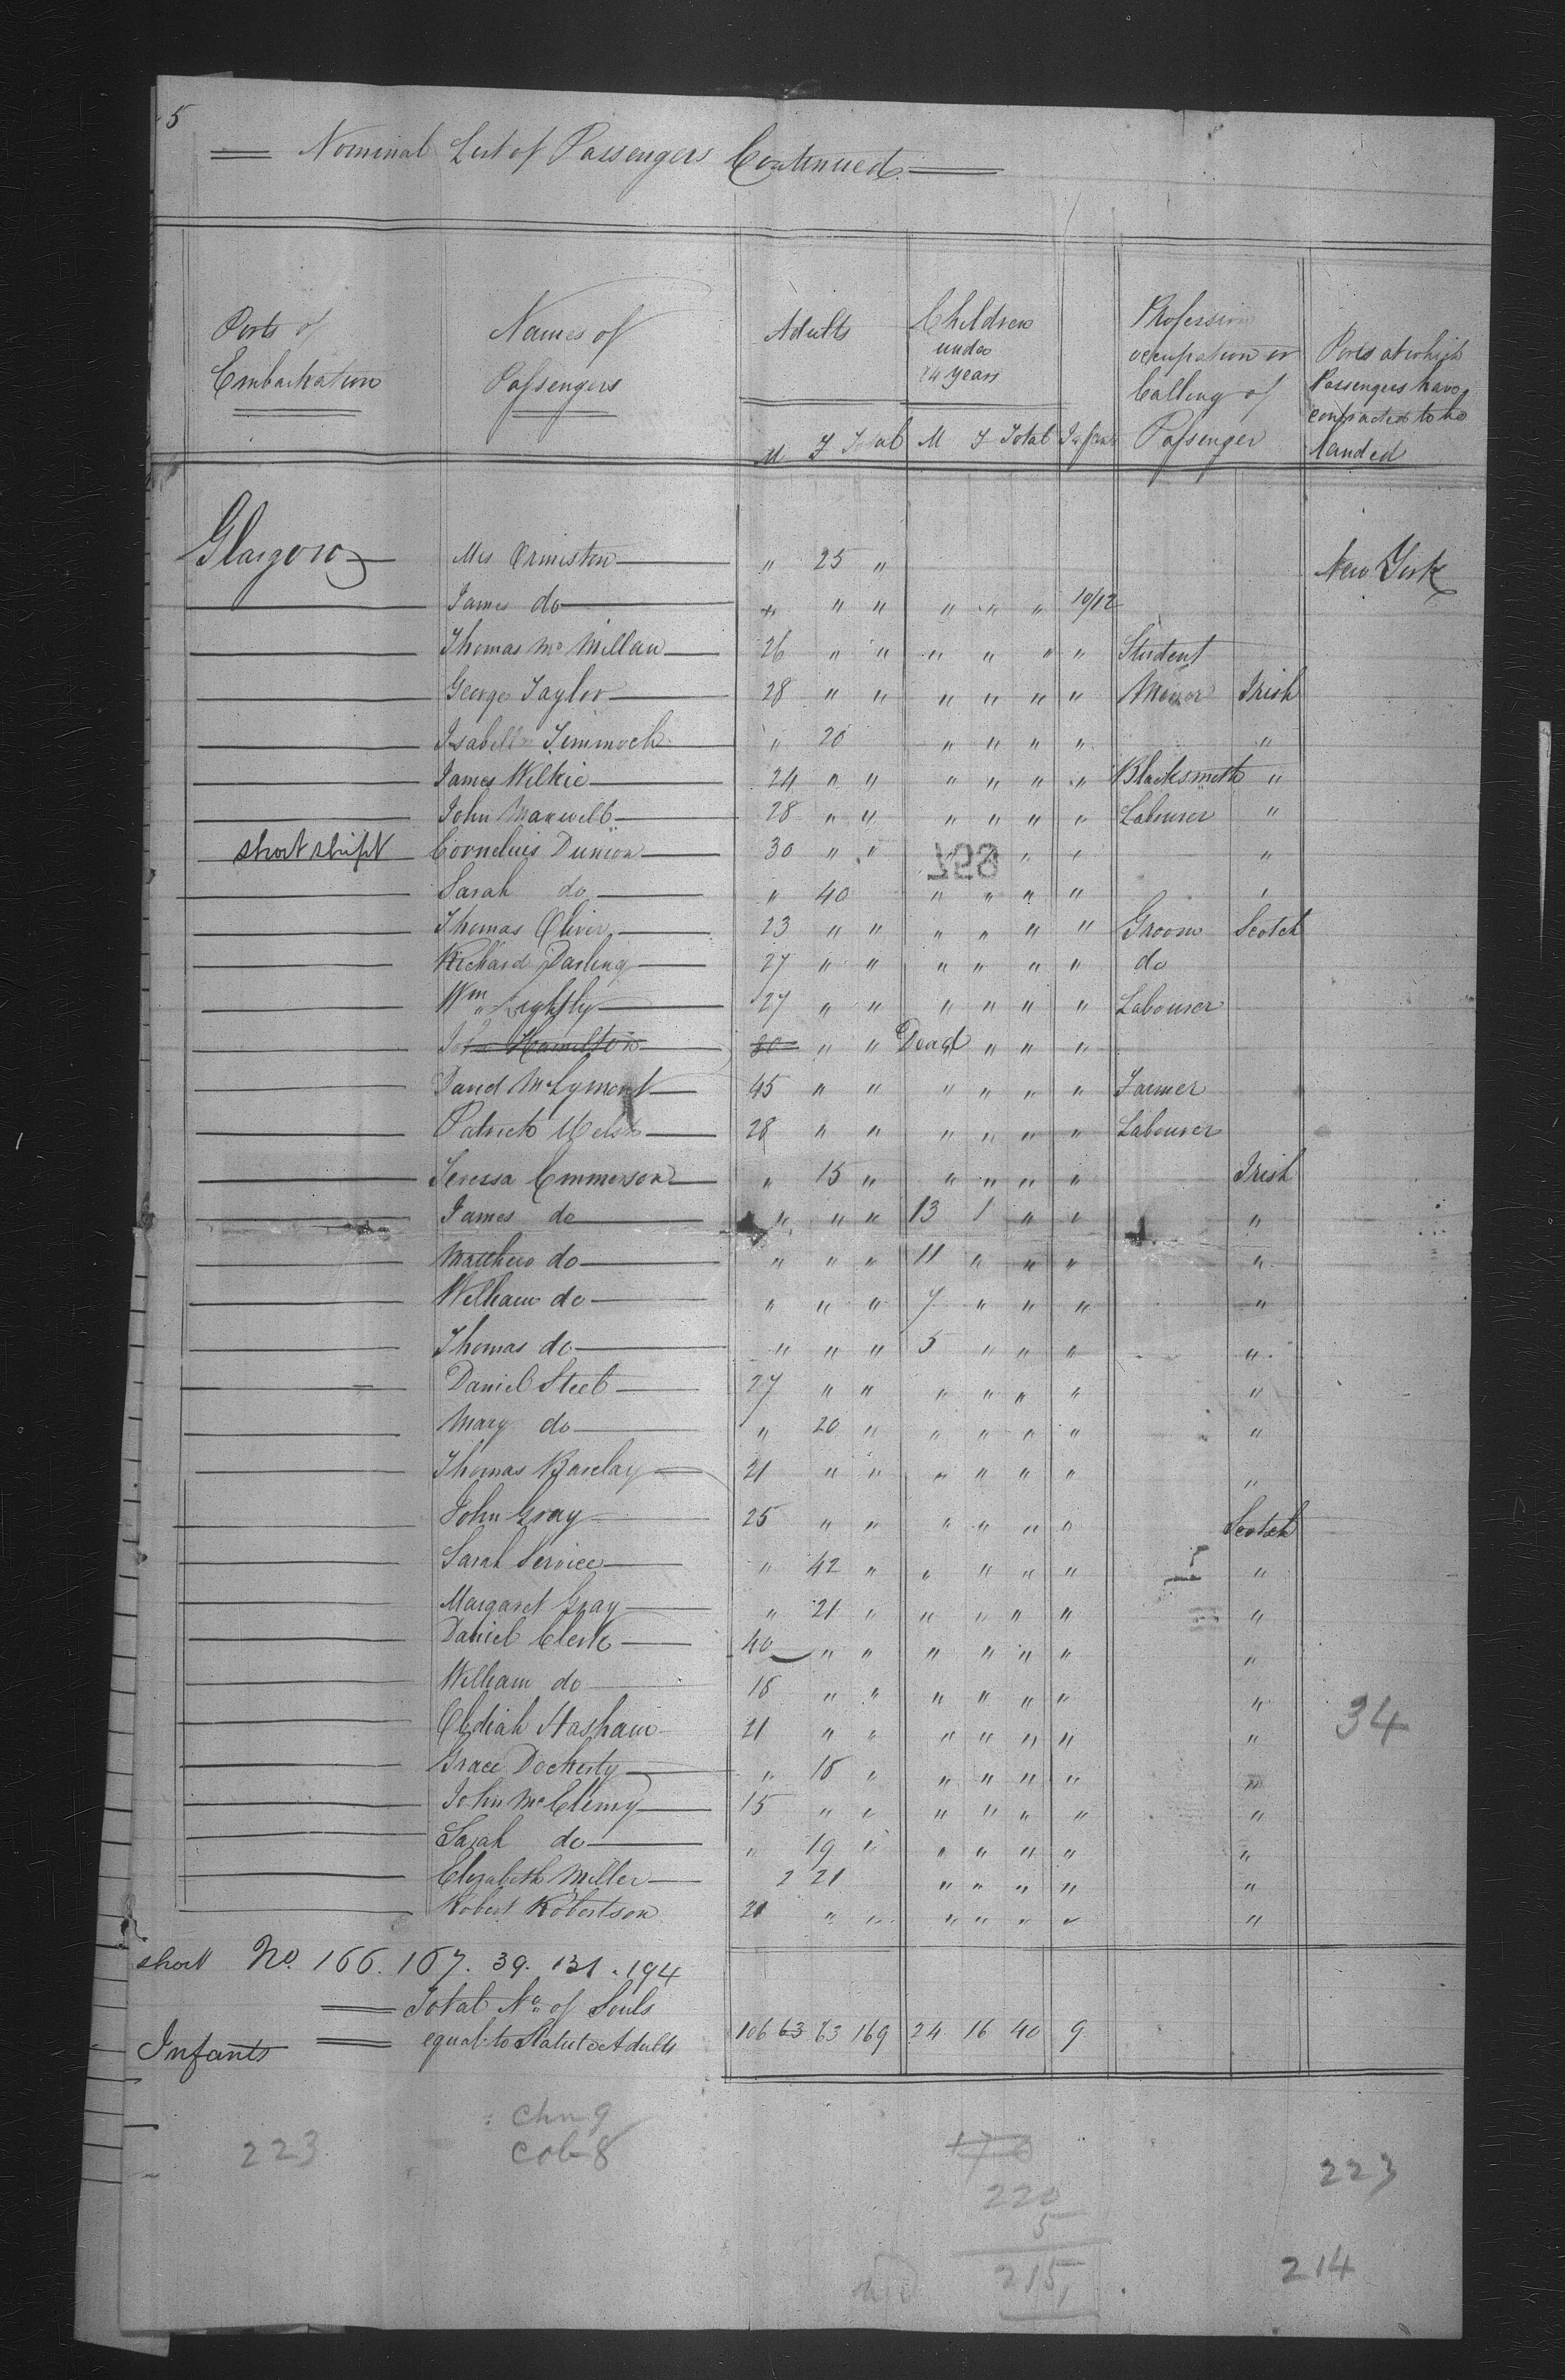 5
Nominal List of Passengers Continued
Ports of Embarkation
Names of Passengers
Adults
Children under 14 years
Profession occupation or Calling of Passenger
Ports at which Passengers have contracted to be landed
M F Total M F Total Infants
Glasgow Mrs Ormiston " 25 " New York
James do " " " " " " 10/12
Thomas Mc Millan 26 " " " " " " Student
George Taylor 28 " " " " " " Irish
Isabella " 20 " " " " "
James Wilkie 24 " " " " " " Blacksmith "
John Maxwell 28 " " " " " " Labourer "
short shipt Cornelius Dunion 30 " " " " " "
697
Sarah do " 40 " " " " "
Thomas Oliver 23 " " " " " " Groom Scotch
Richard Darling 27 " " " " " " do
Wm 27 " " " " " " Labourer
John Hamilton " " Dead " " "
David McLymont 45 " " " " " " Farmer
Patrick Welsh 28 " " " " " " Labourer
Teressa Emmerson " 15 " " " " " Irish
James do " " " 13 1 " " "
Matthew do " " " 11 " " " "
William do " " " 7 " " " "
Thomas do " " " 5 " " " "
Daniel Steel 27 " " " " " " "
Mary do " 20 " " " " " "
Thomas Barclay 21 " " " " " " "
John Gray 25 " " " " " " Scotch
Sarah Service " 42 " " " " " "
Margaret Gray " 21 " " " " " "
Daniel Clerk 40 " " " " " " "
William do 18 " " " " " " "
Hasham 21 " " " " " " " 34
Grace Dockerty " 18 " " " " " "
John McClemy 15 " " " " " " "
Sarah do " 19 " " " " " "
Elizabeth Miller 2 21 " " " " "
Robert Robertson 21 " " " " " " "
short No. 166. 167. 39. 131. 194
Total No of Souls
Infants equal to Statute Adults 106 63 63 169 24 16 40 9
chn 9
223 cob 8
176
220 223
5
215 214